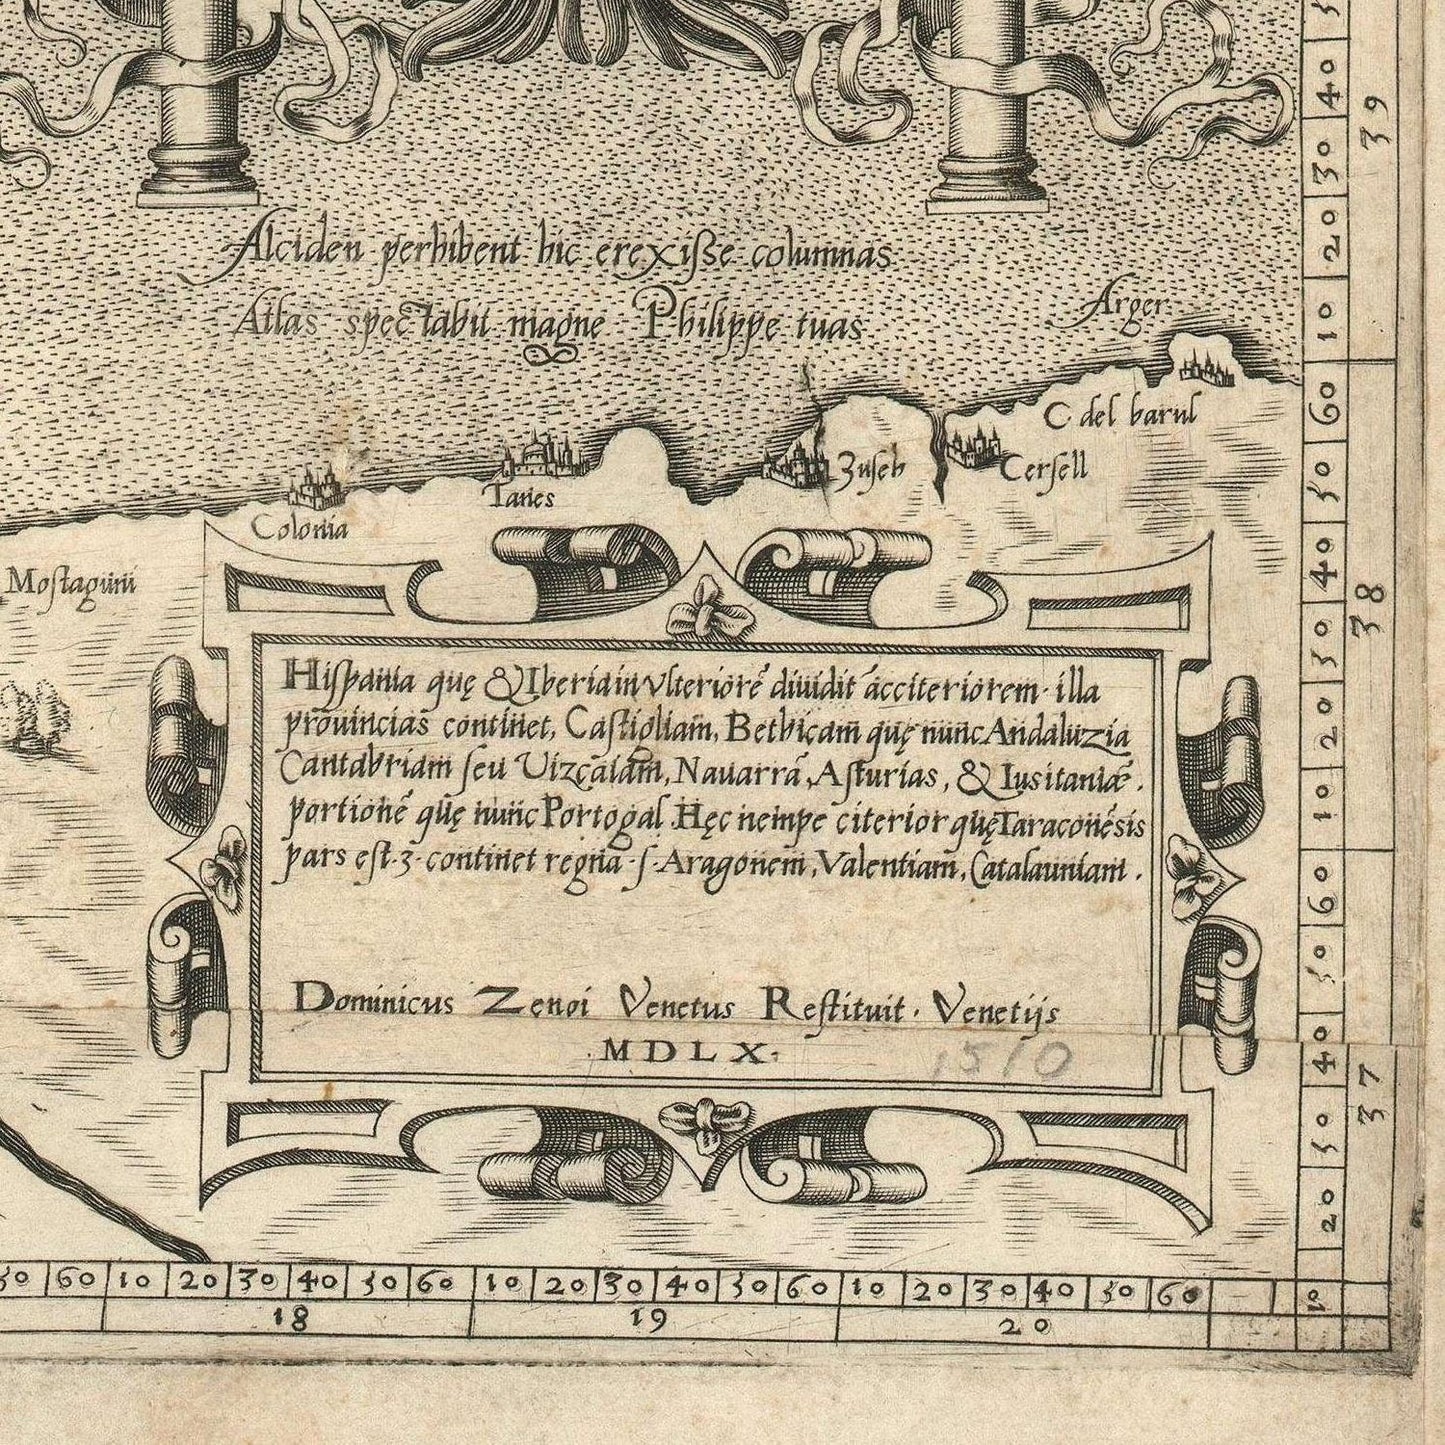 Alciden perhibent hic erexiſse columnas
Atlas spectabil magne Philippe tuas
Arger.
C del barul
Zuſeh
Cerſell
Tanes
Colonia
Moſtagini
Hiſpania quę & Iberia in vlteriorē diuidit acciteriorem · illa
prouincias continet, Caſtigliam, Bethicam quę nunc Andaluzia
Cantabriam ſeu Uizcaiam, Nauarrā, Aſturias, & Lusitaniæ.
portionē quę nunc Portogal Hęc nempe citerior quę Taraconēsis
pars eſt · 3 · continet regna · ſ · Aragonem, Valentiam, Catalauniam.
Dominicus Zenoi Venetus Reſtituit · Venetijs
·MDLX·
1510
40
30
20
10
39
60
50
40
30
20
10
38
60
50
40
30
20
37
10
50 60 10 20 30 40 50 60 10 20 30 40 50 60 10 20 30 40 50 60
18 19 20